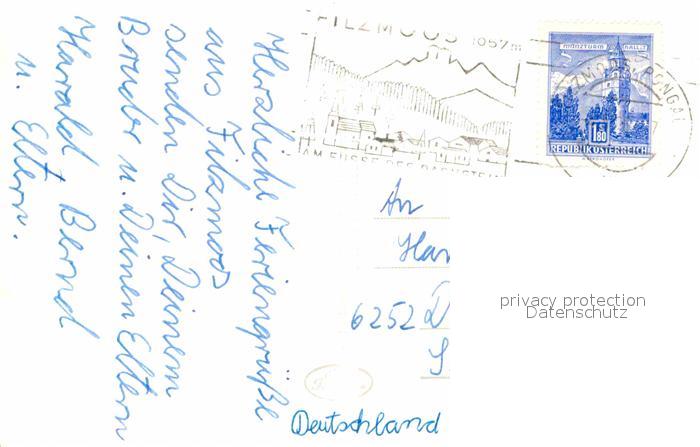 Herzliche Feriengrüße
aus Filzmoos
senden Dir, Deinem
Bruder u. Deinen Eltern
Harald + Bernd
u. Eltern.
FILZMOOS 1057m
AM FUSSE DES DACHSTEIN
MÜNZTURM HALL i. T.
S 1.80
REPUBLIK ÖSTERREICH
An
Har
6252 D
S
Deutschland
privacy protection
Datenschutz